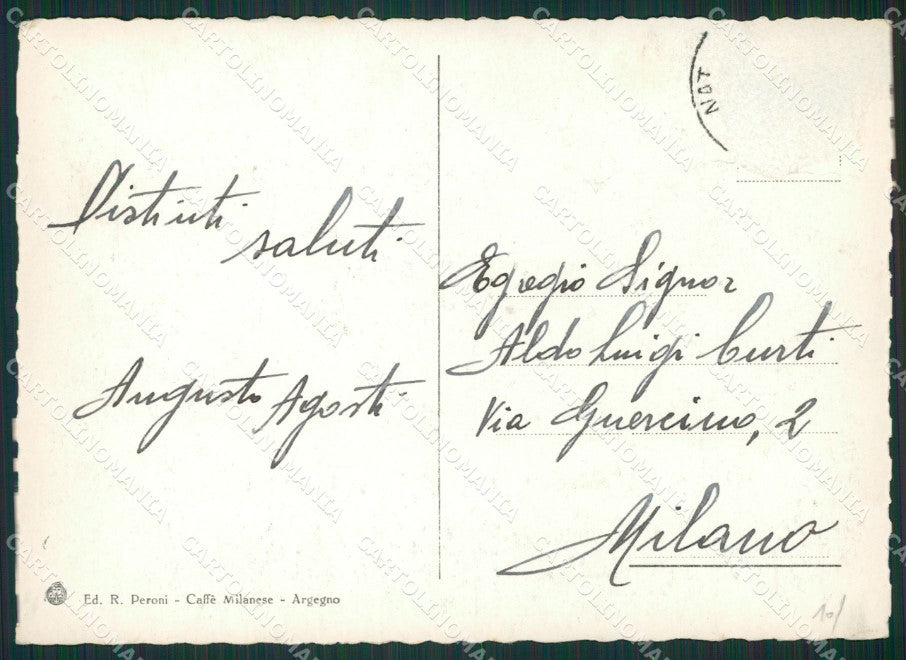 Distinti
saluti
Augusto Agosti
Egregio Signor
Aldo Luigi Curti
Via Guercino, 2
Milano
Ed. R. Peroni - Caffè Milanese - Argegno
NOT
10/
CARTOLINOMANIA